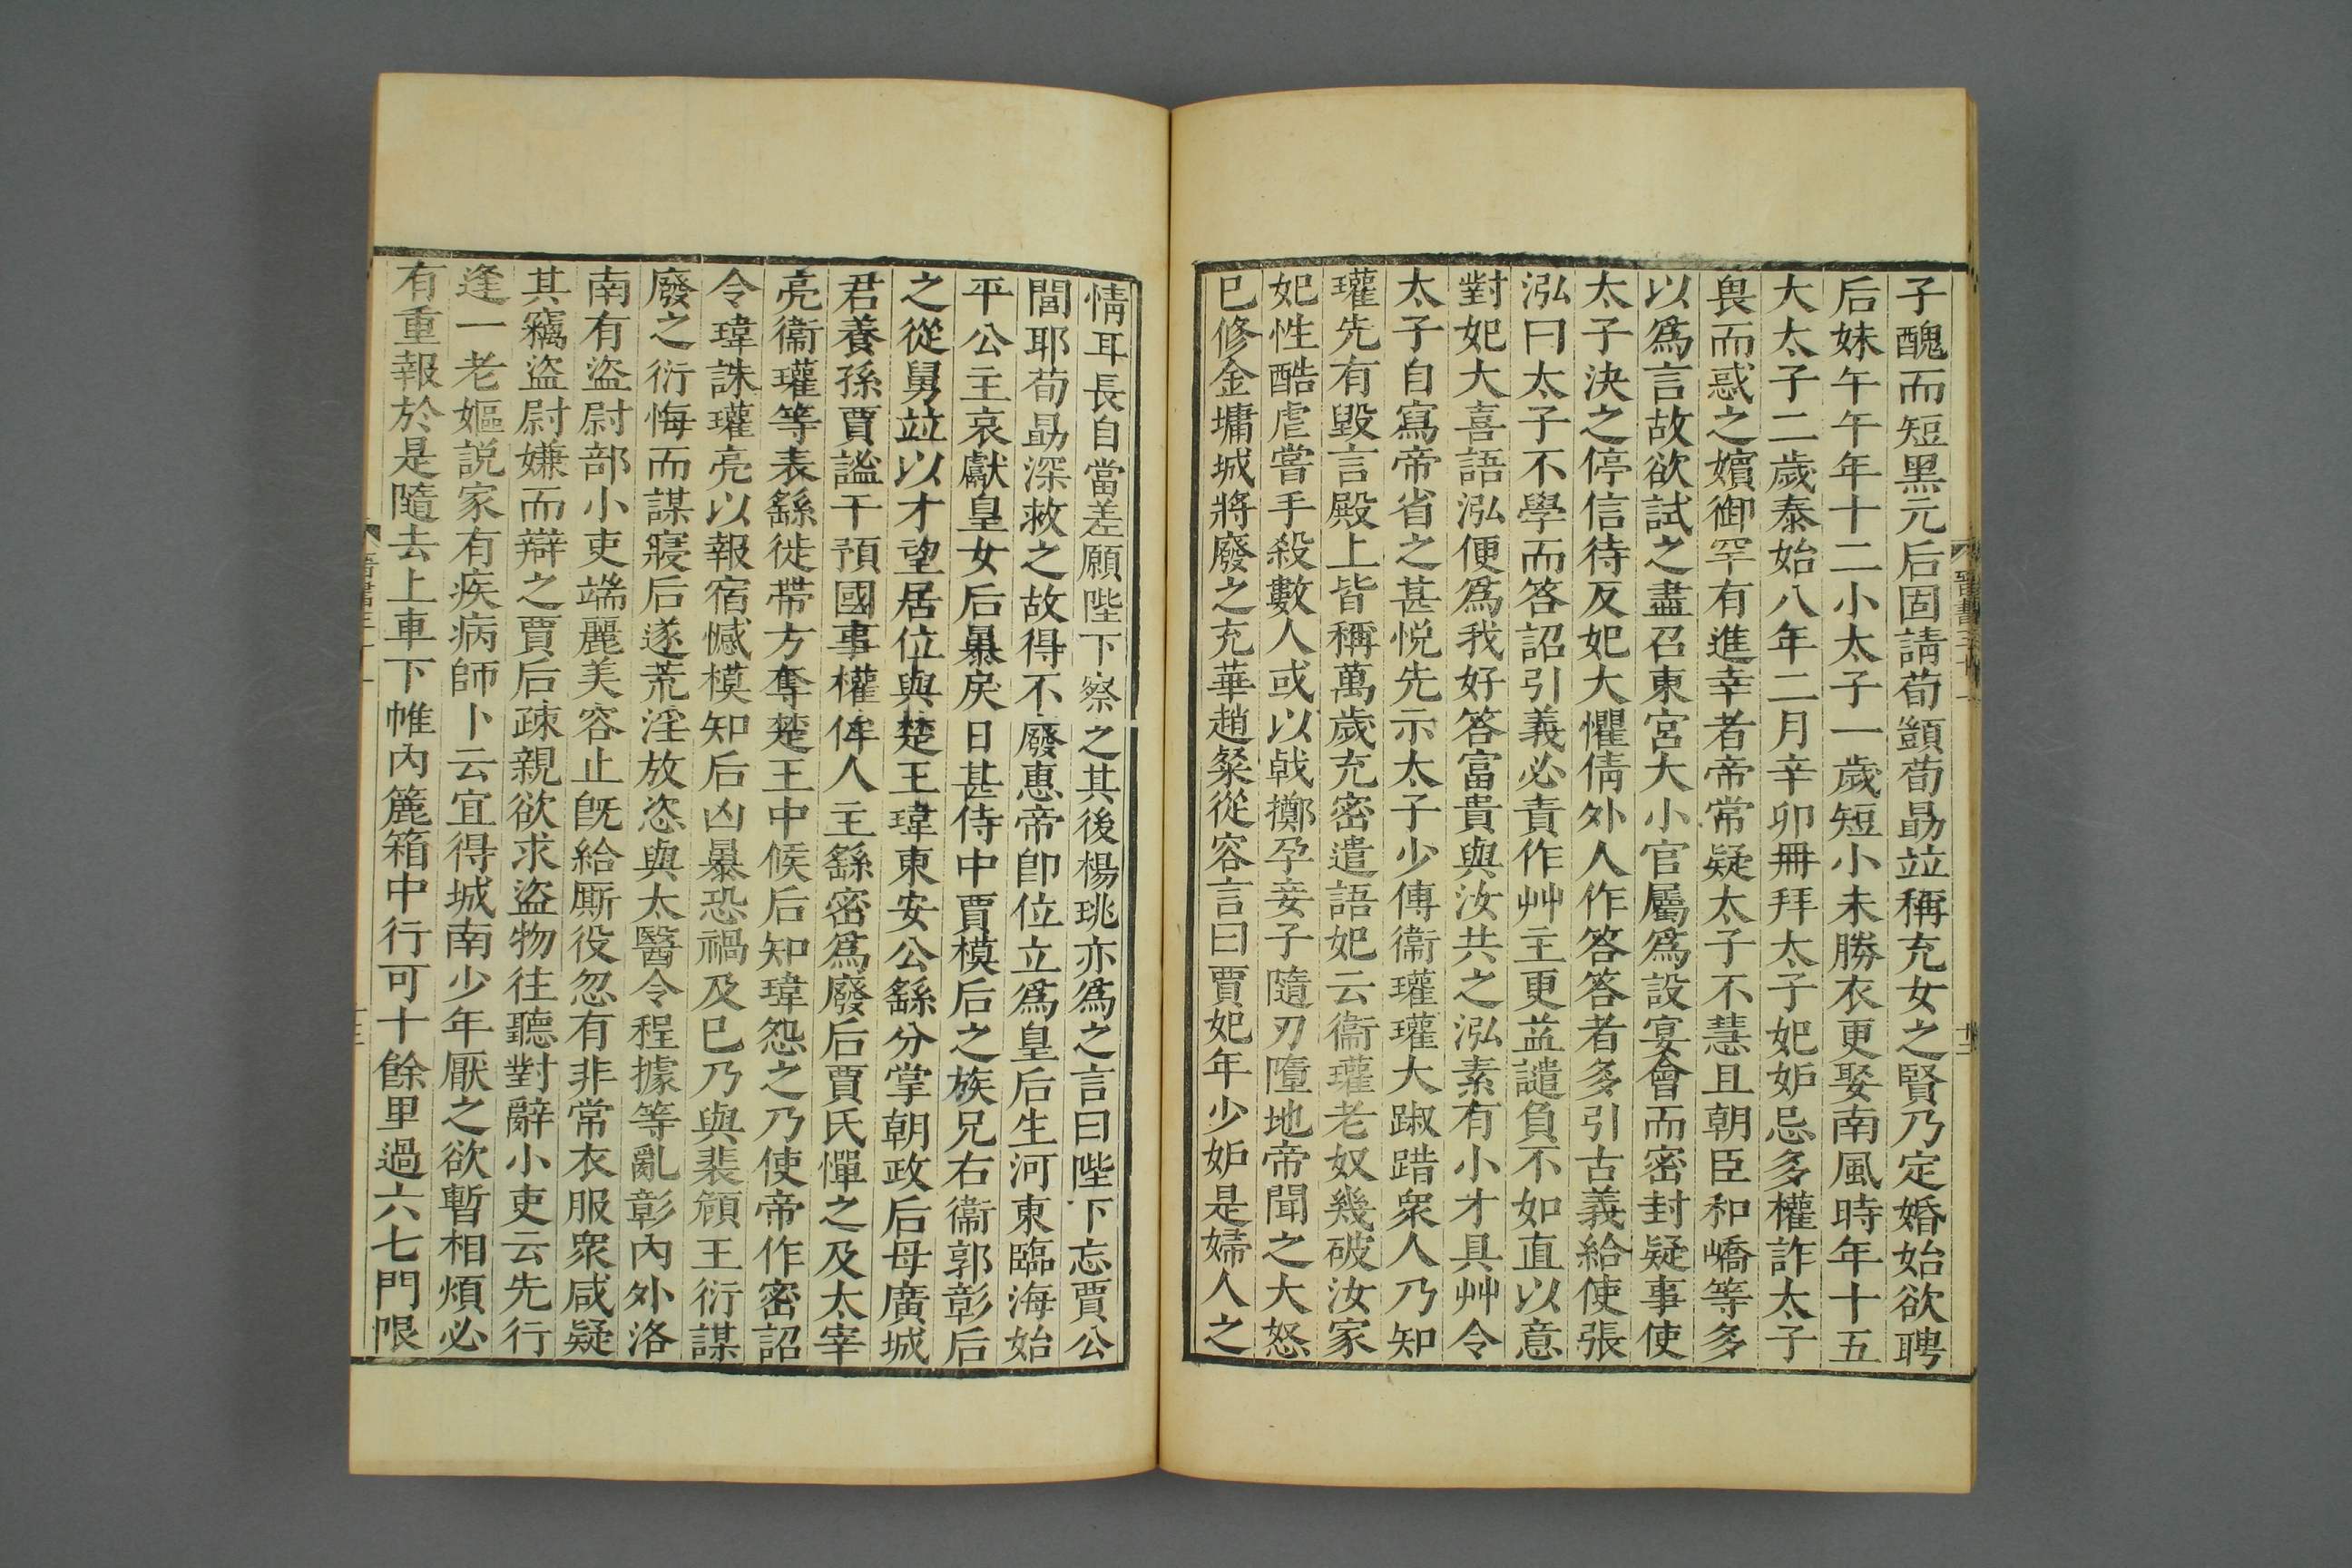 子醜而短黑元后固請荀顗荀勗竝稱充女之賢乃定婚始欲聘
后妹午午年十二小太子一歲短小未勝衣更娶南風時年十五
大太子二歲泰始八年二月辛卯冊拜太子妃妒忌多權詐太子
畏而惑之嬪御罕有進幸者帝常疑太子不慧且朝臣和嶠等多
以爲言故欲試之盡召東宮大小官屬爲設宴會而密封疑事使
太子決之停信待反妃大懼倩外人作答答者多引古義給使張
泓曰太子不學而答詔引義必責作艸主更益譴負不如直以意
對妃大喜語泓便爲我好答富貴與汝共之泓素有小才具艸令
太子自寫帝省之甚悅先示太子少傳衞瓘瓘大踧踖衆人乃知
瓘先有毀言殿上皆稱萬歲充密遣語妃云衞瓘老奴幾破汝家
妃性酷虐嘗手殺數人或以戟擲孕妾子隨刃墮地帝聞之大怒
巳修金墉城將廢之充華趙粲從容言曰賈妃年少妒是婦人之
情耳長自當差願陛下察之其後楊珧亦爲之言曰陛下忘賈公
閭耶荀勗深救之故得不廢惠帝卽位立爲皇后生河東臨海始
平公主哀獻皇女后暴戾日甚侍中賈模后之族兄右衞郭彰后
之從舅竝以才望居位與楚王瑋東安公繇分掌朝政后母廣城
君養孫賈謐干預國事權侔人主繇密爲廢后賈氏憚之及太宰
亮衞瓘等表繇徙帶方奪楚王中候后知瑋怨之乃使帝作密詔
令瑋誅瓘亮以報宿憾模知后凶暴恐禍及巳乃與裴頠王衍謀
廢之衍悔而謀寢后遂荒淫放恣與太醫令程據等亂彰內外洛
南有盜尉部小吏端麗美容止旣給厮役忽有非常衣服衆咸疑
其竊盜尉嫌而辯之賈后疎親欲求盜物往聽對辭小吏云先行
逢一老嫗説家有疾病師卜云宜得城南少年厭之欲暫相煩必
有重報於是隨去上車下帷內簏箱中行可十餘里過六七門限